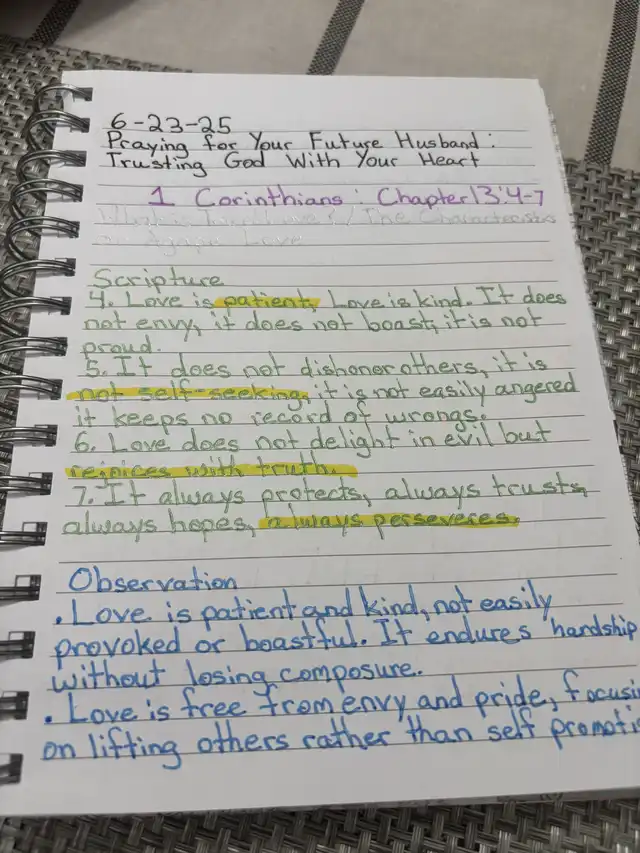 6-23-25
Praying for Your Future Husband:
Trusting God With Your Heart
1 Corinthians: Chapter 13:4-7
What is True Love? / The Characteristics
of Agape Love
Scripture
4. Love is patient, Love is kind. It does
not envy, it does not boast, it is not
proud.
5. It does not dishonor others, it is
not self-seeking, it is not easily angered
it keeps no record of wrongs.
6. Love does not delight in evil but
rejoices with truth.
7. It always protects, always trusts,
always hopes, always perseveres.
Observation
. Love is patient and kind, not easily
provoked or boastful. It endures hardship
without losing composure.
. Love is free from envy and pride, focusi
on lifting others rather than self promoti